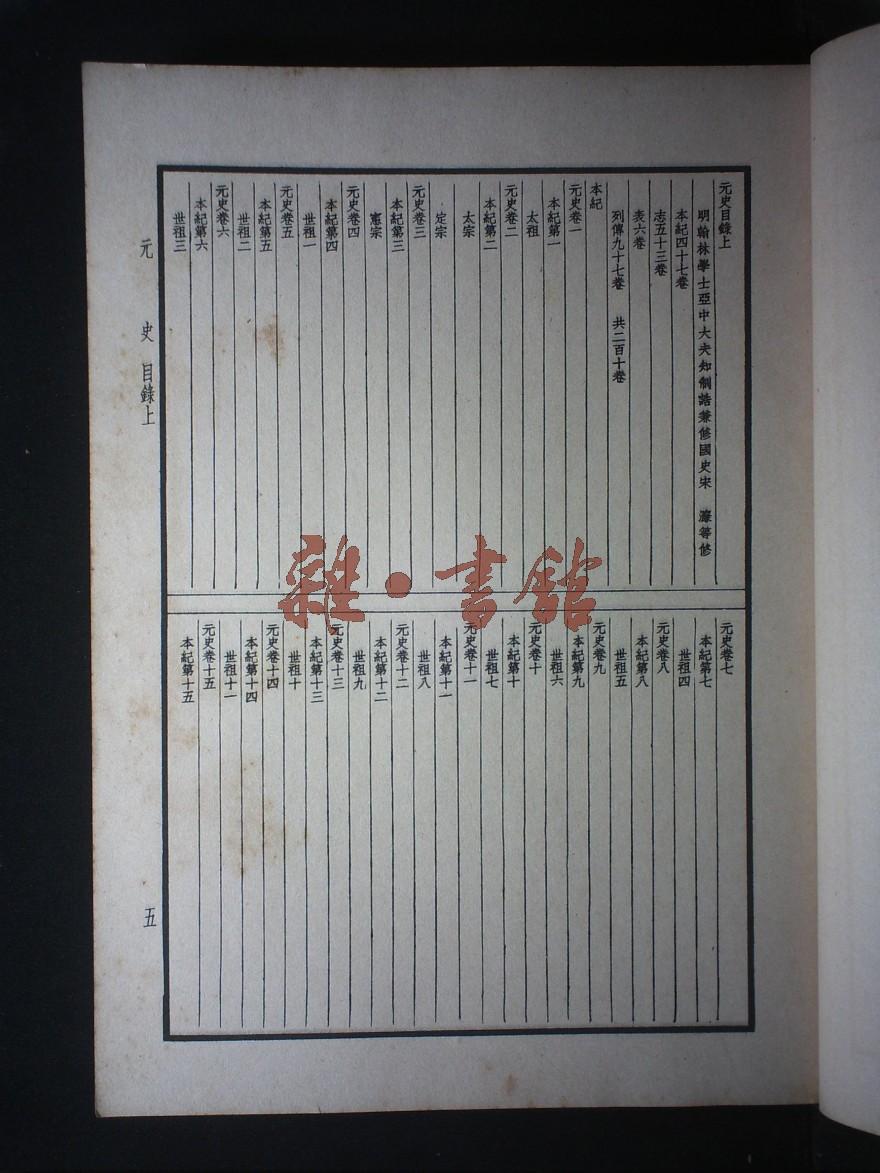 元史目錄上
明翰林學士亞中大夫知制誥兼修國史宋　濂等修
本紀四十七卷
志五十三卷
表六卷
列傳九十七卷　共二百十卷
本紀
元史卷一
本紀第一
太祖
元史卷二
本紀第二
太宗
定宗
元史卷三
本紀第三
憲宗
元史卷四
本紀第四
世祖一
元史卷五
本紀第五
世祖二
元史卷六
本紀第六
世祖三
元史卷七
本紀第七
世祖四
元史卷八
本紀第八
世祖五
元史卷九
本紀第九
世祖六
元史卷十
本紀第十
世祖七
元史卷十一
本紀第十一
世祖八
元史卷十二
本紀第十二
世祖九
元史卷十三
本紀第十三
世祖十
元史卷十四
本紀第十四
世祖十一
元史卷十五
本紀第十五
元　史　目錄上
五
雜·書館